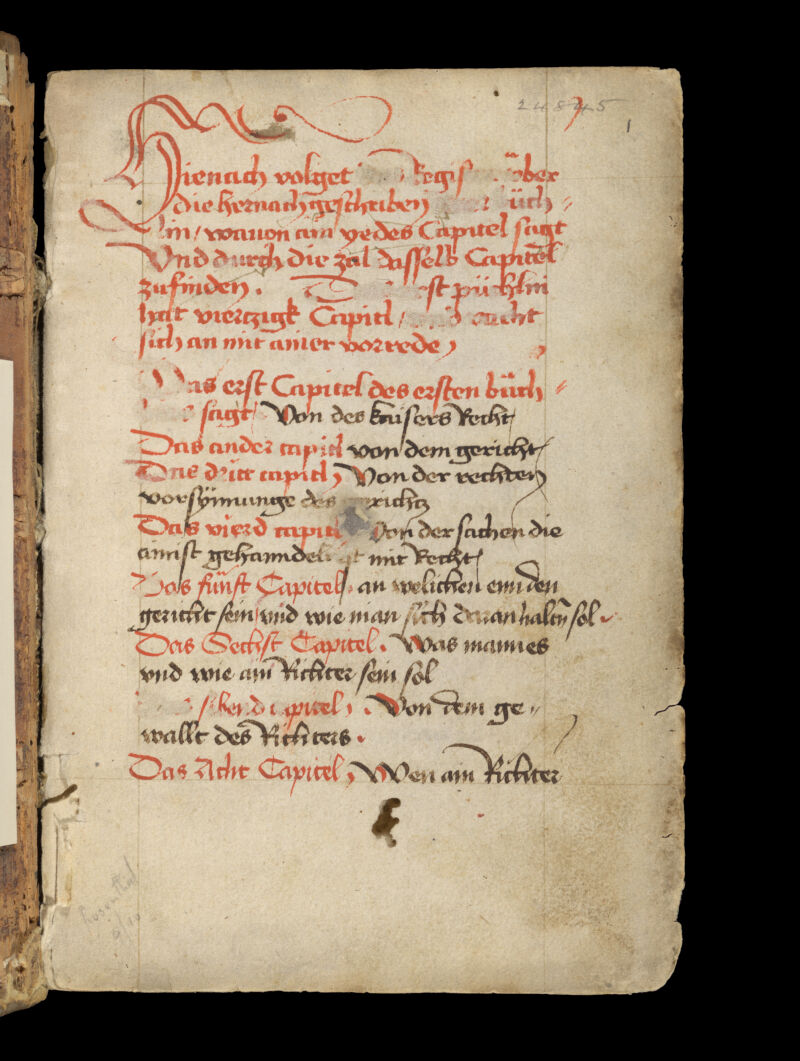 24845
1
Hienach volget Regis über
die hernachgeschriben büch-
lin / wauon ain yedes Capitel sagt
Vnd durch die zal dasselb Capitel
zufinden . püchlin
hat viertzigk Capitl /
sich an mit ainer vorrede
Das erst Capitel des ersten büch-
sagt / Von des kaisers Recht
Das ander capitl von dem gericht
Das dritt capitl Von der rechten
vorsÿnnunge des gerichtz
Das vierd capitl Von der sachen die
ainist gehanndelt ist mit Recht
Das fünft Capitel an welichen ennden
gericht sein / vnd wie man sich daran haltn sol .
Das Sechst Capitel . Was mannes
vnd wie ain Richter sein sol
sibend capitel . Von dem ge-
wallt des Richters .
Das Acht Capitel Wen ain Richter
Rosenthal